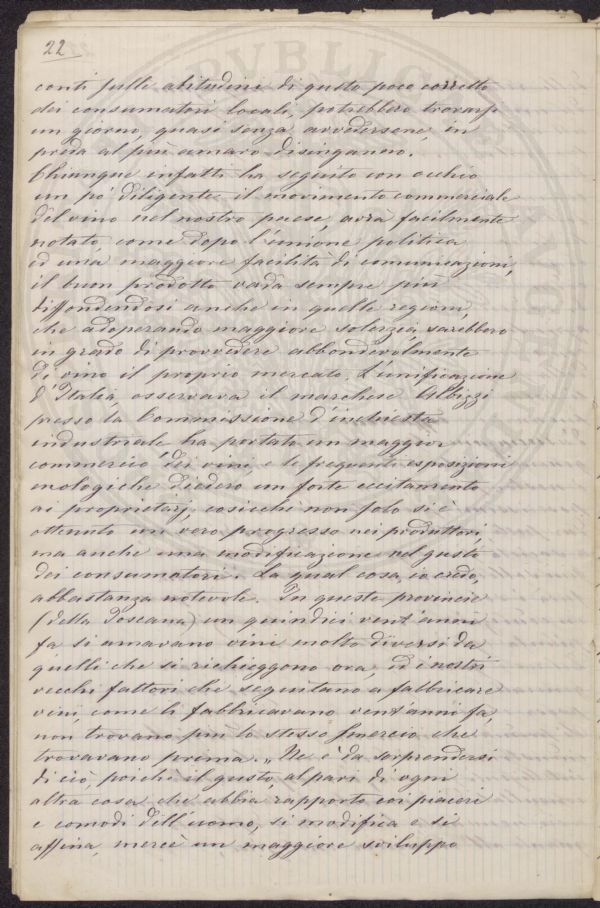 22
conti sulle abitudini di gusto poco corretto
dei consumatori locali, potrebbero trovarsi
un giorno, quasi senza avvedersene, in
preda al più amaro disinganno.
Chiunque infatti ha seguito con occhio
un po' diligente il movimento commerciale
del vino nel nostro paese, avrà facilmente
notato, come dopo l'unione politica
ed una maggiore facilità di comunicazioni,
il buon prodotto vada sempre più
diffondendosi anche in quelle regioni,
che adoperando maggiore solerzia, sarebbero
in grado di provvedere abbondevolmente
di vino il proprio mercato. L'unificazione
d'Italia, osservava il marchese Albizzi
presso la Commissione d'inchiesta
industriale ha portato un maggior
commercio dei vini, e le frequenti esposizioni
enologiche diedero un forte eccitamento
ai proprietarj, cosicchè non solo si è
ottenuto un vero progresso nei produttori,
ma anche una modificazione nel gusto
dei consumatori. La qual cosa, io credo,
abbastanza notevole. In queste provincie
(della Toscana) un quindici vent'anni
fa si amavano vini molto diversi da
quelli che si richieggono ora, ed i nostri
vecchi fattori che seguitano a fabbricare
vini, come li fabbricavano vent'anni fa,
non trovano più lo stesso smercio che
trovavano prima. „ Ne è da sorprendersi
di ciò, poichè il gusto, al pari di ogni
altra cosa che abbia rapporto coi piaceri
e comodi dell'uomo, si modifica e si
affina, mercè un maggiore sviluppo